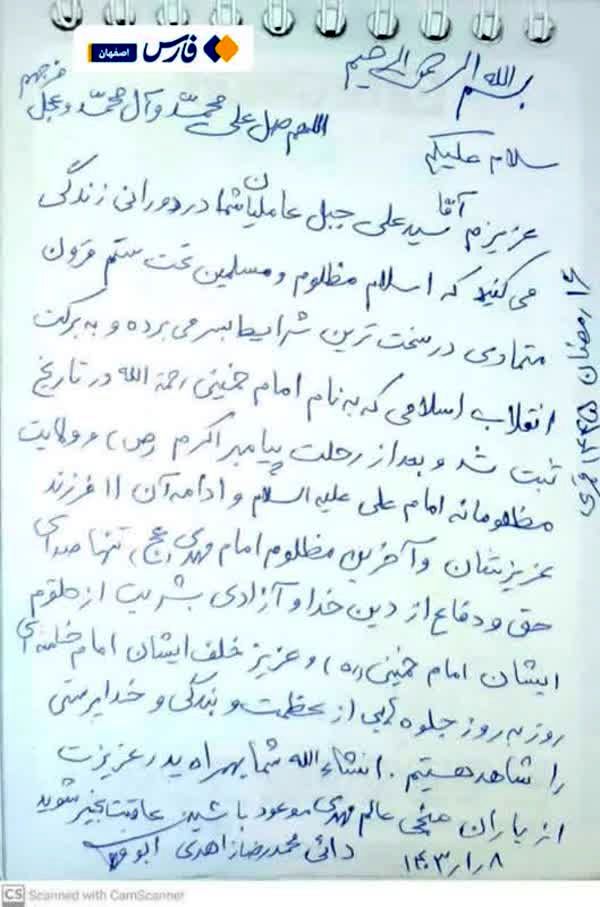 فارس
اصفهان
بسم الله الرحمن الرحیم
اللهم صل علی محمد و آل محمد و عجل فرجهم
سلام علیکم
عزیزم آقا سید علی جبل عاملیان شما در دورانی زندگی
می کنید که اسلام مظلوم و مسلمین تحت ستم قرون
متمادی در سخت ترین شرایط بسر می برده و به برکت
انقلاب اسلامی که به نام امام خمینی رحمة الله در تاریخ
ثبت شد و بعد از رحلت پیامبر اکرم (ص) و ولایت
مظلومانه امام علی علیه السلام و ادامه آن ۱۱ فرزند
عزیزشان و آخرین مظلوم امام مهدی (عج) تنها صدای
حق و دفاع از دین خدا و آزادی بشریت از حلقوم
ایشان امام خمینی (ره) و عزیز خلف ایشان امام خامنه ای
روز به روز جلوه هایی از عظمت و بندگی و خدا پرستی
را شاهد هستیم. انشاءالله شما بهمراه پدر عزیزت
از یاران منجی عالم مهدی موعود باشین عاقبت بخیر شوید
دائی محمد رضا زاهدی
۱۴۰۳/۱/۸
رمضان ۱۴۴۵ قمری
CS Scanned with CamScanner